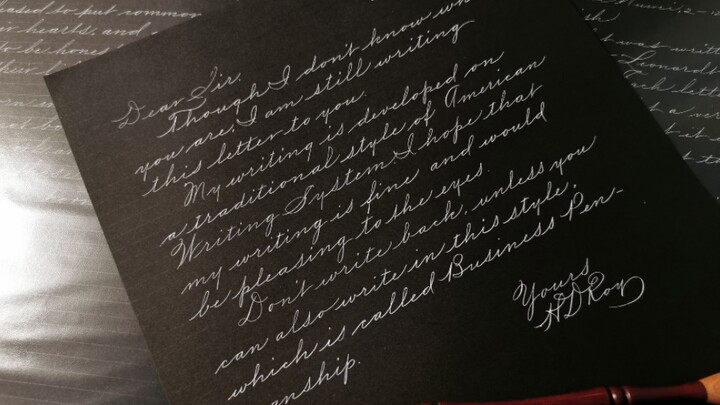 Dear Sir,
Though I don't know wh
you are, I am still writing
this letter to you.
My writing is developed on
a traditional style of American
Writing System. I hope that
my writing is fine and would
be pleasing to the eyes.
Don't write back, unless you
can also write in this style,
which is called Business Pen-
anship.
Yours
HDRoy
eased to put common
hearts, and
to be hones
was writ
Leonardt
letter
a ver